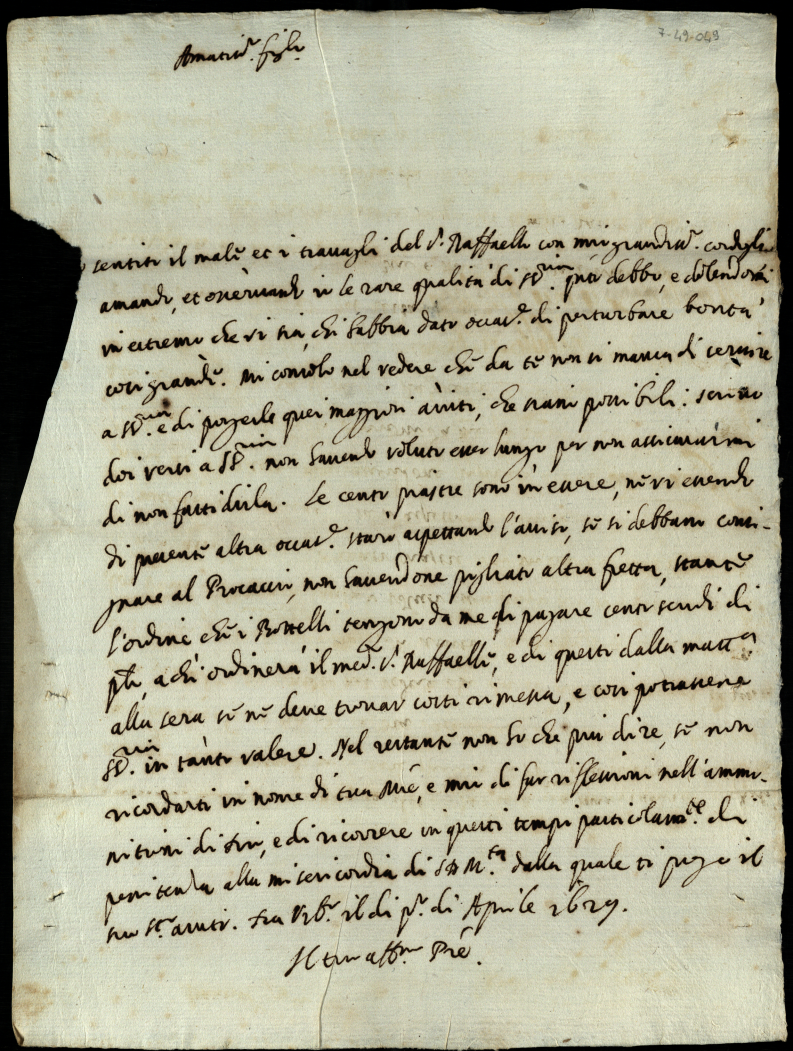 7-49-049
Amatis.mo figl.o
sentito il male et i travagli del S.r Raffaelli con mio grandis.mo cordoglio
amando, et osservando io le rare qualità di SS.ria q.nto debbo, e dolendomi
in estremo che vi sia, chi habbia dato occas.ne di perturbare bontà
così grande. Mi consolo nel vedere che da te non si manca di servire
a SS.ria e di porgerle quei maggiori aiuti, che siano possibili: scrivo
doi versi a SS.ria non havendo voluto esser lungo per non assicurarmi
di non fastidirla. Le cento piastre sono in essere, nè vi essendo
di presente altra occas.ne starò aspettando l'aviso, se si debbano consi-
gnare al Procaccio, non havendone pigliato altra fretta, stante
l'ordine che i Bostelli tengono da me di pagare cento scudi di
p.li, a chi ordinerà il med.o S.r Raffaelli, e di questi dalla matt.a
alla sera se ne deve trovar costì rimessa, e così potrassene
SS.ria in tanto valere. Nel restante non so che più dire, se non
ricordarti in nome di tua M̃re, e mio di far riflessioni nell'ammo-
nitioni di Dio, e di ricorrere in questi tempi particolarm.te di
penitenza alla misericordia di S D M.tà dalla quale ti prego il
suo s.to aiuto. Da Urb.o il dì p.o di Aprile 1629.
Il tuo aff.mo Prẽ.